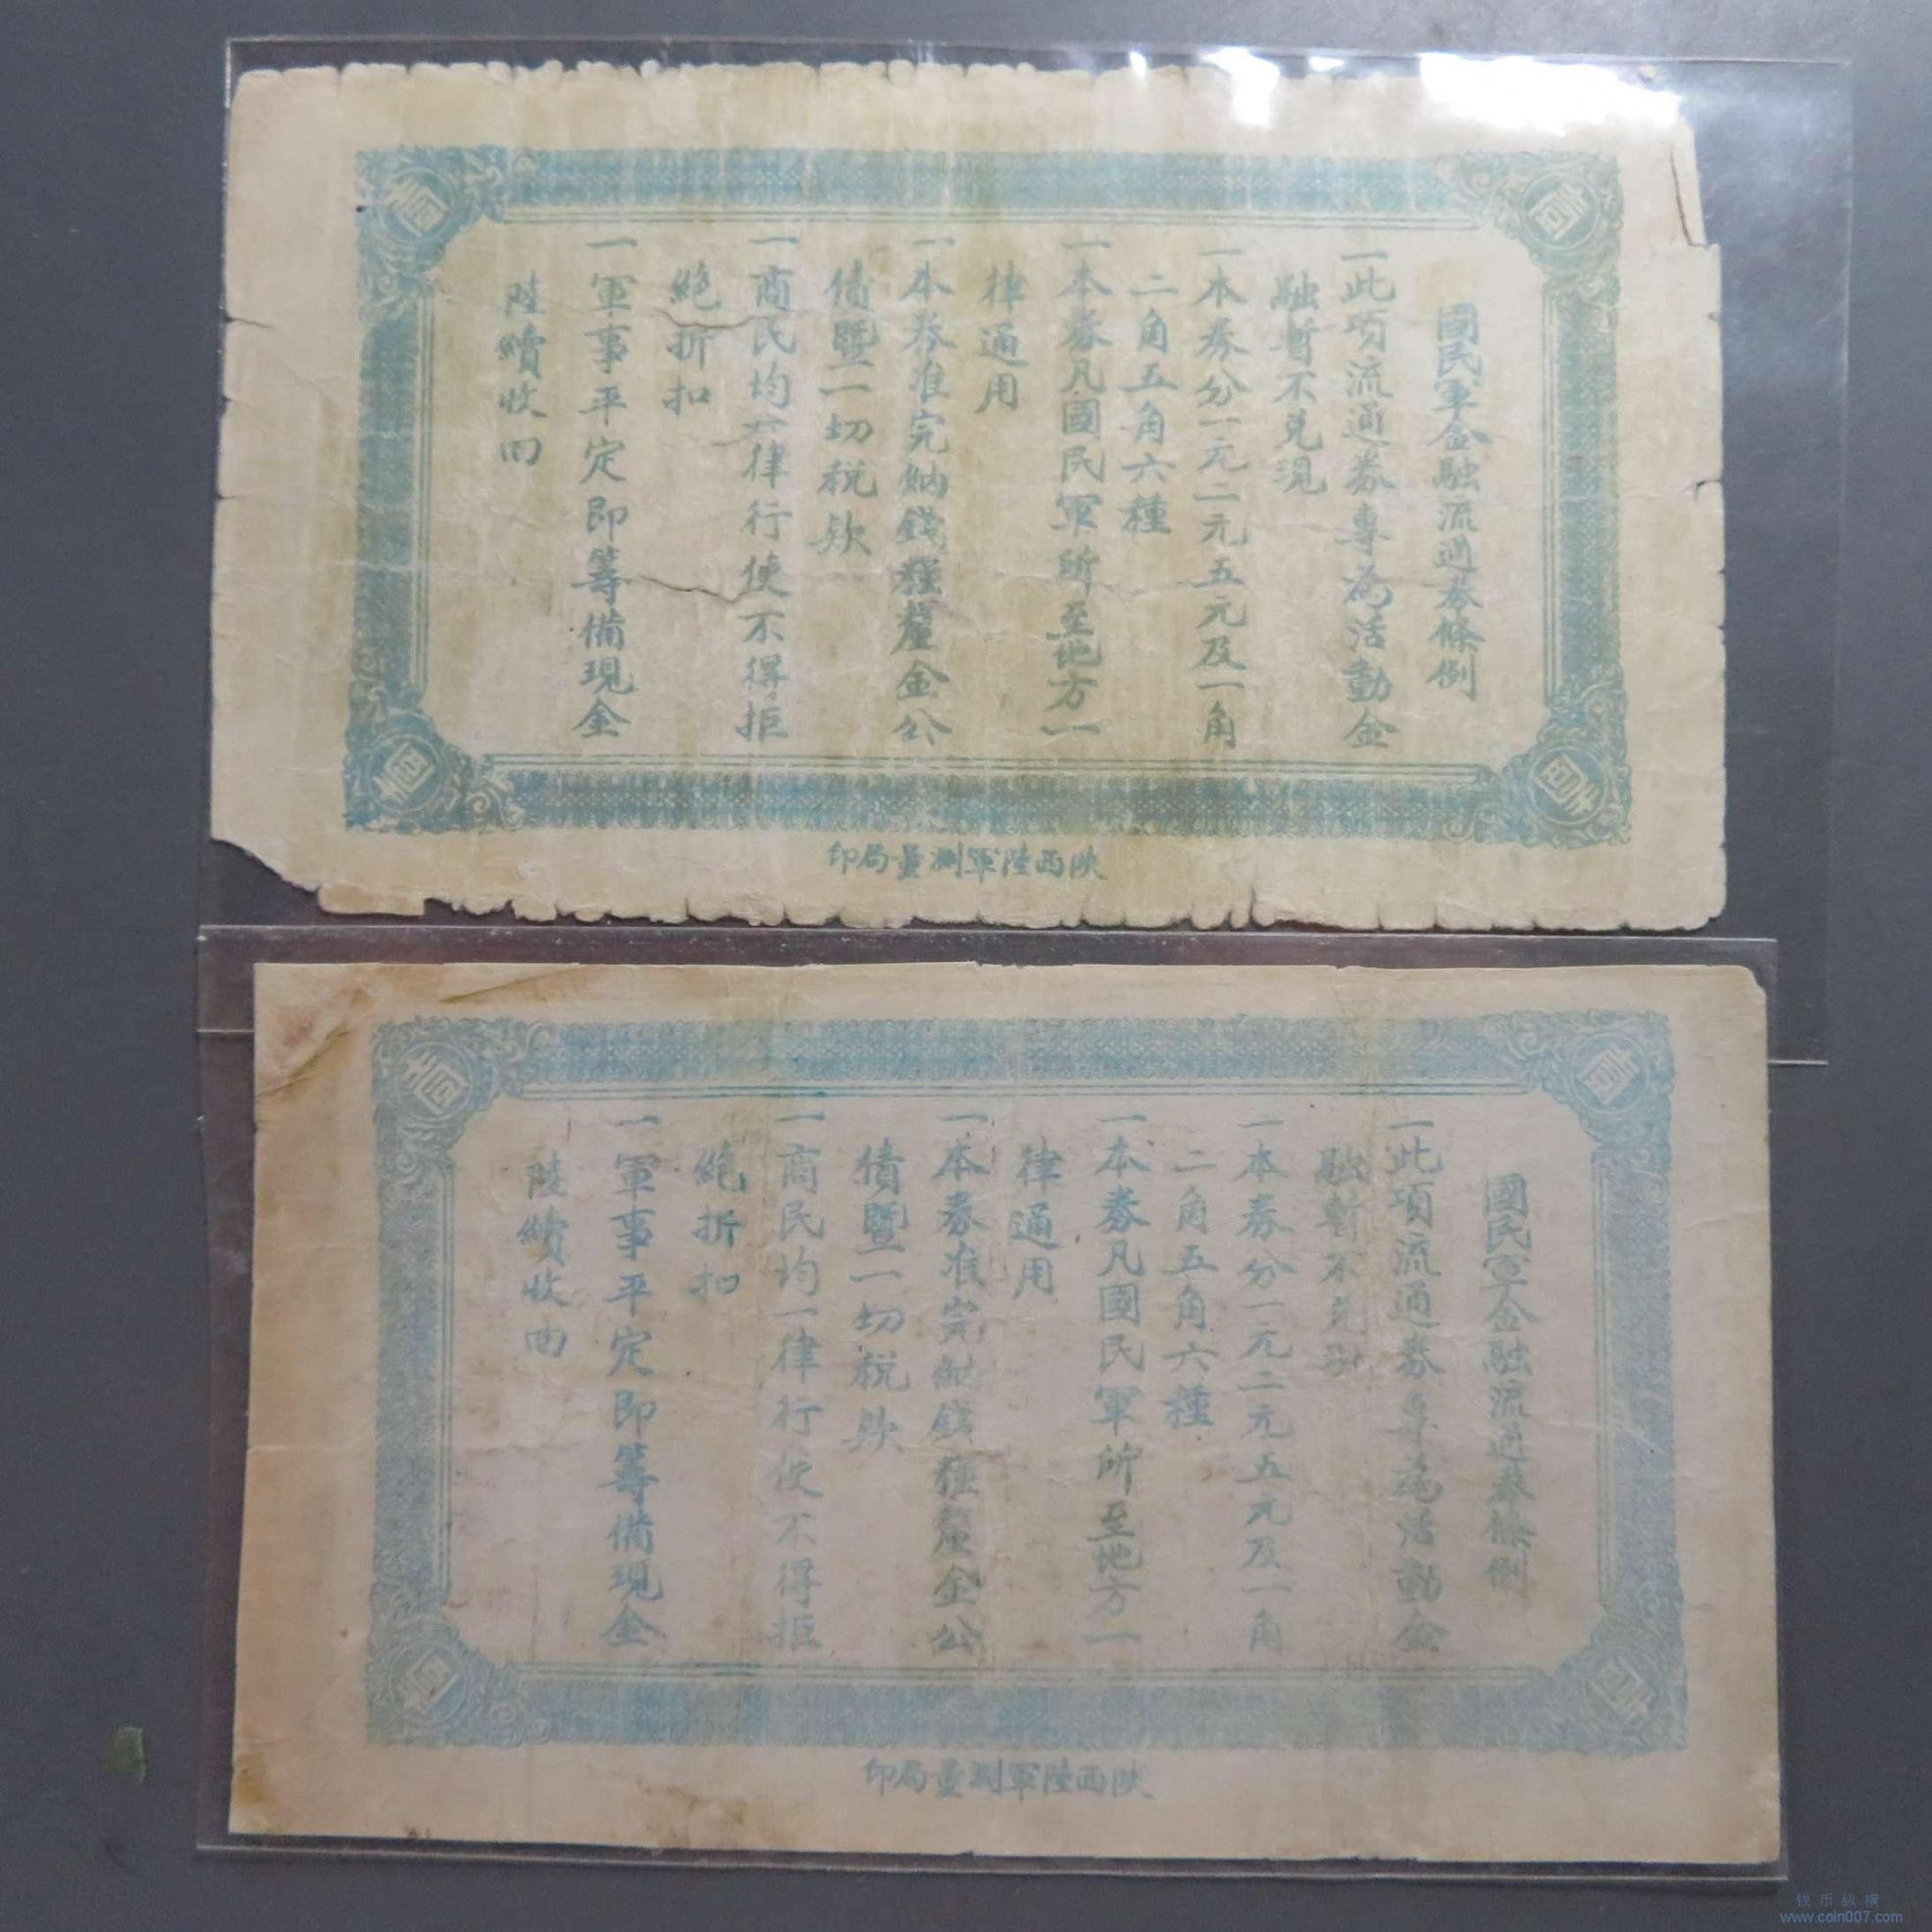 國民軍金融流通券條例
一此項流通券專爲活動金
融暫不兌現
一本券分一元二元五元及一角
二角五角六種
一本券凡國民軍所至地方一
律通用
一本券准完納錢糧釐金公
債暨一切稅欵
一商民均一律行使不得拒
絶折扣
一軍事平定即籌備現金
陸續收回
陝西陸軍測量局印
壹
壹
壹
壹
國民軍金融流通券條例
一此項流通券專爲活動金
融暫不兌現
一本券分一元二元五元及一角
二角五角六種
一本券凡國民軍所至地方一
律通用
一本券准完納錢糧釐金公
債暨一切稅欵
一商民均一律行使不得拒
絶折扣
一軍事平定即籌備現金
陸續收回
陝西陸軍測量局印
壹
壹
壹
壹
钱币纵横
www.coin007.com